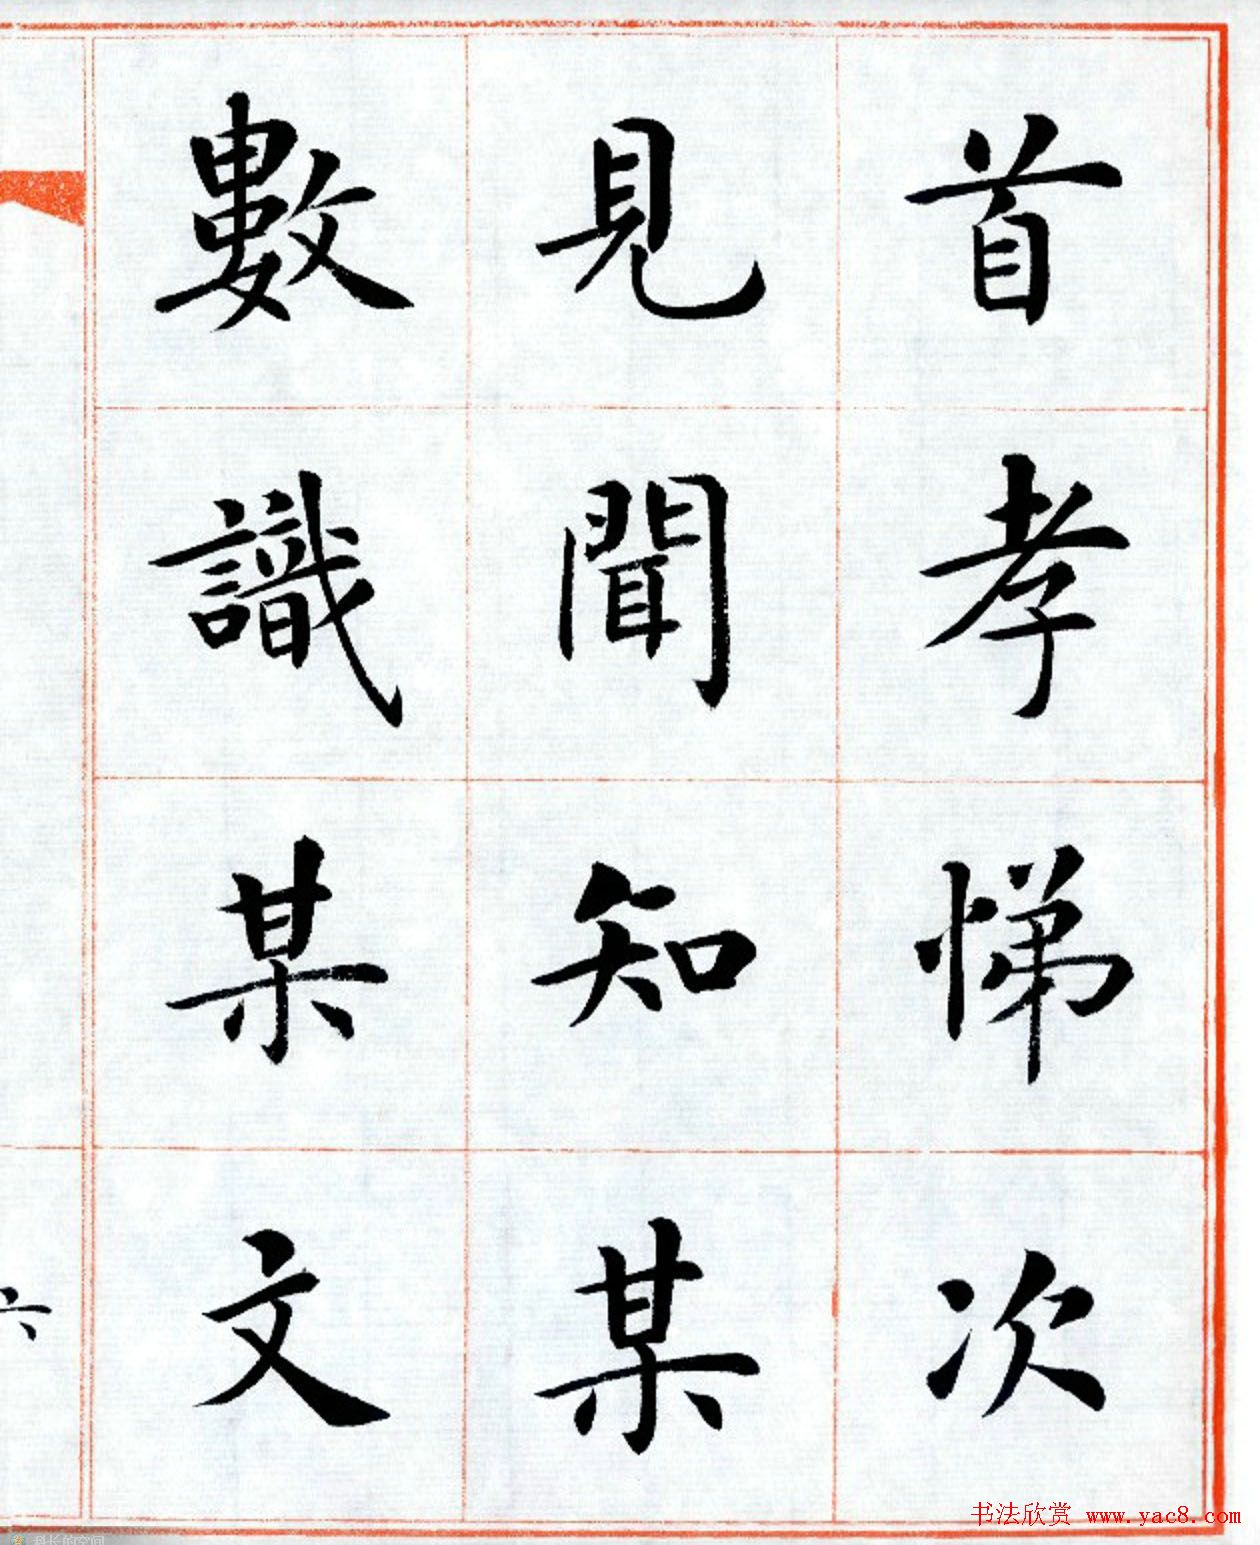 首孝悌次
見聞知某
數識某文
六
书法欣赏 www.yac8.com